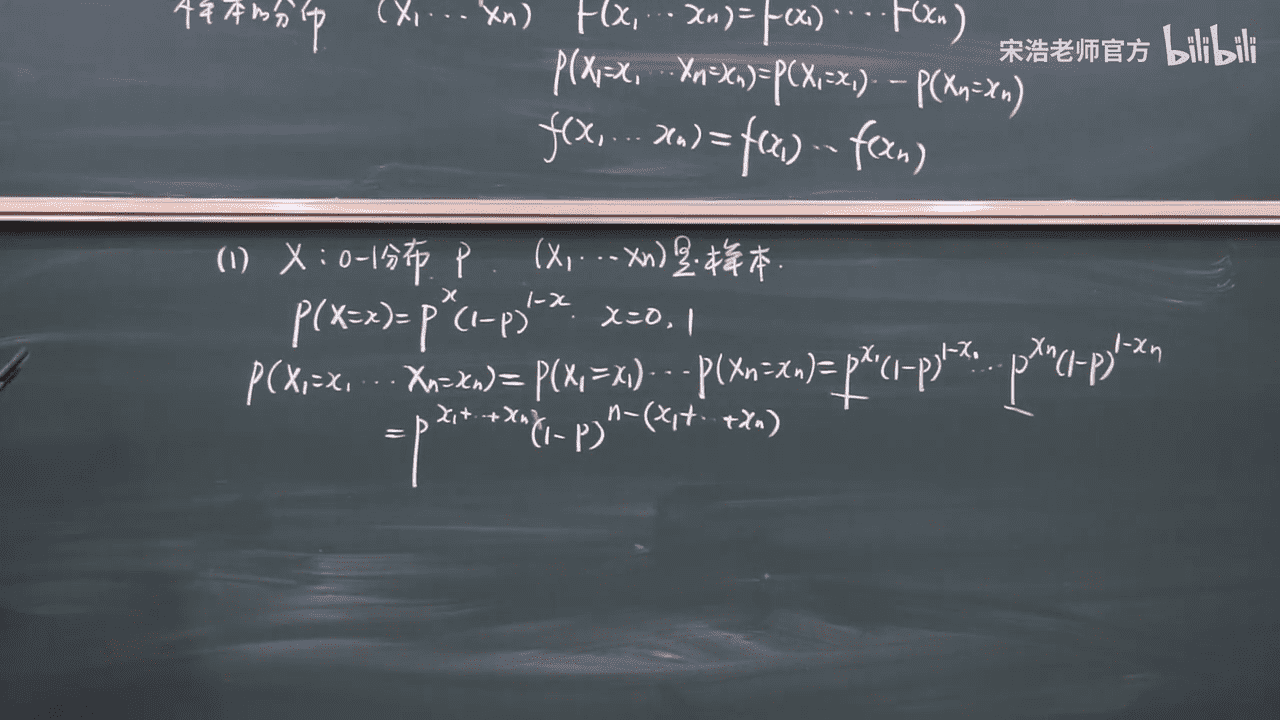 样本的分布 (X₁ ⋯ Xn) F(x₁ ⋯ xn)=F(x₁) ⋯ F(xn)
宋浩老师官方 bilibili
P(X₁=x₁ ⋯ Xn=xn)=P(X₁=x₁) ⋯ P(Xn=xn)
f(x₁ ⋯ xn)=f(x₁) ⋯ f(xn)
(1) X:0-1分布 P. (X₁ ⋯ Xn)是样本.
P(X=x)=p^x(1-p)^{1-x}. x=0,1
P(X₁=x₁ ⋯ Xn=xn)=P(X₁=x₁) ⋯ P(Xn=xn)=p^{x₁}(1-p)^{1-x₁} ⋯ p^{xn}(1-p)^{1-xn}
=p^{x₁+⋯+xn}(1-p)^{n-(x₁+⋯+xn)}